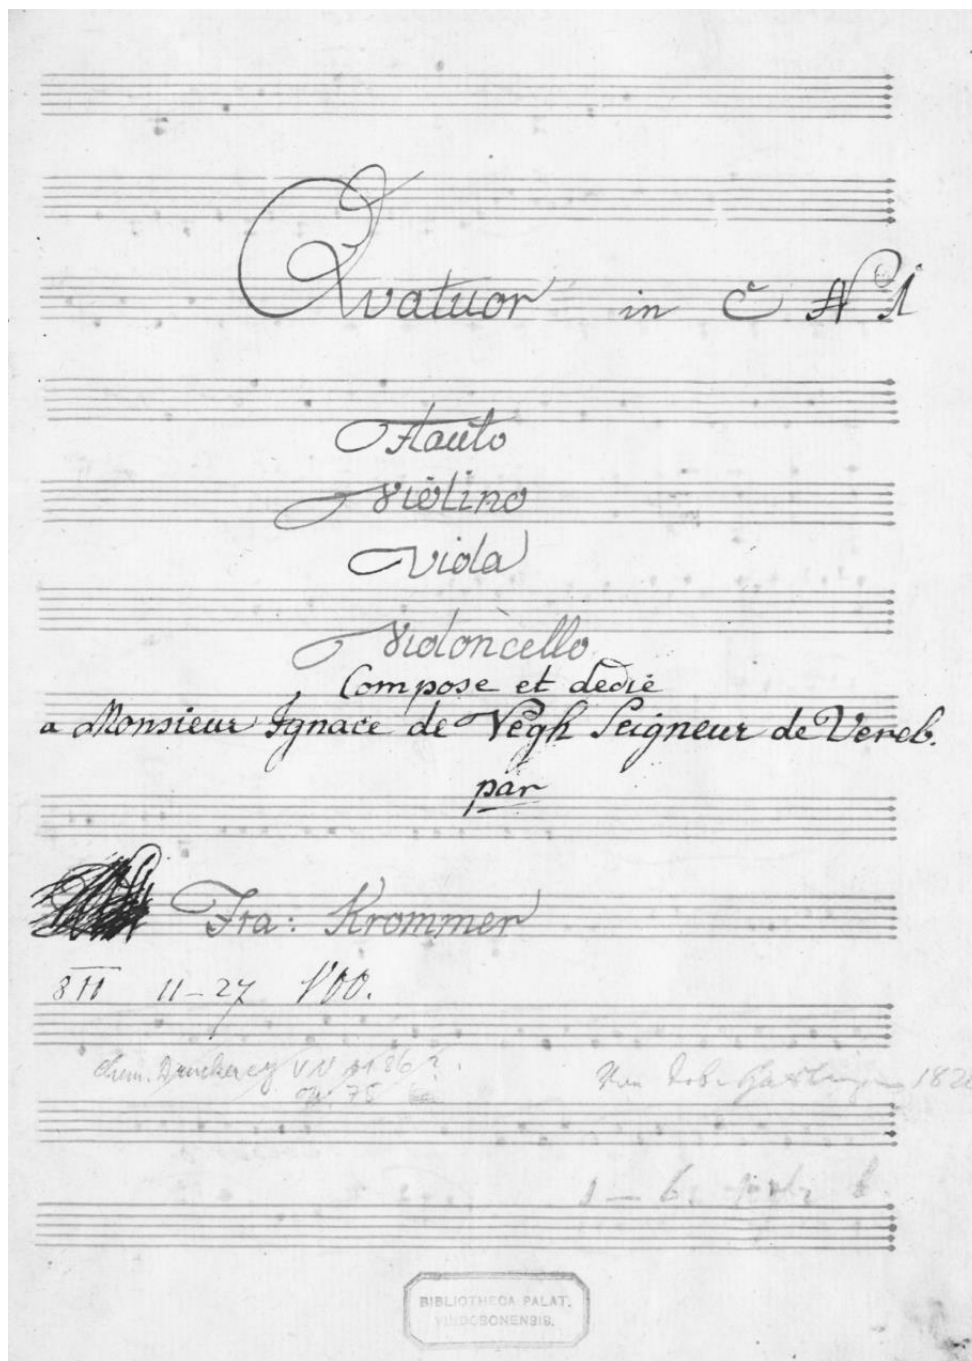 Quatuor in C No 1
Flauto
Violino
Viola
Violoncello
Compose et dedié
a Monsieur Ignace de Vegh Seigneur de Vereb.
par
Fra: Krommer
11-27
op. 75
1 - 6.
BIBLIOTHECA PALAT.
VINDOBONENSIS.